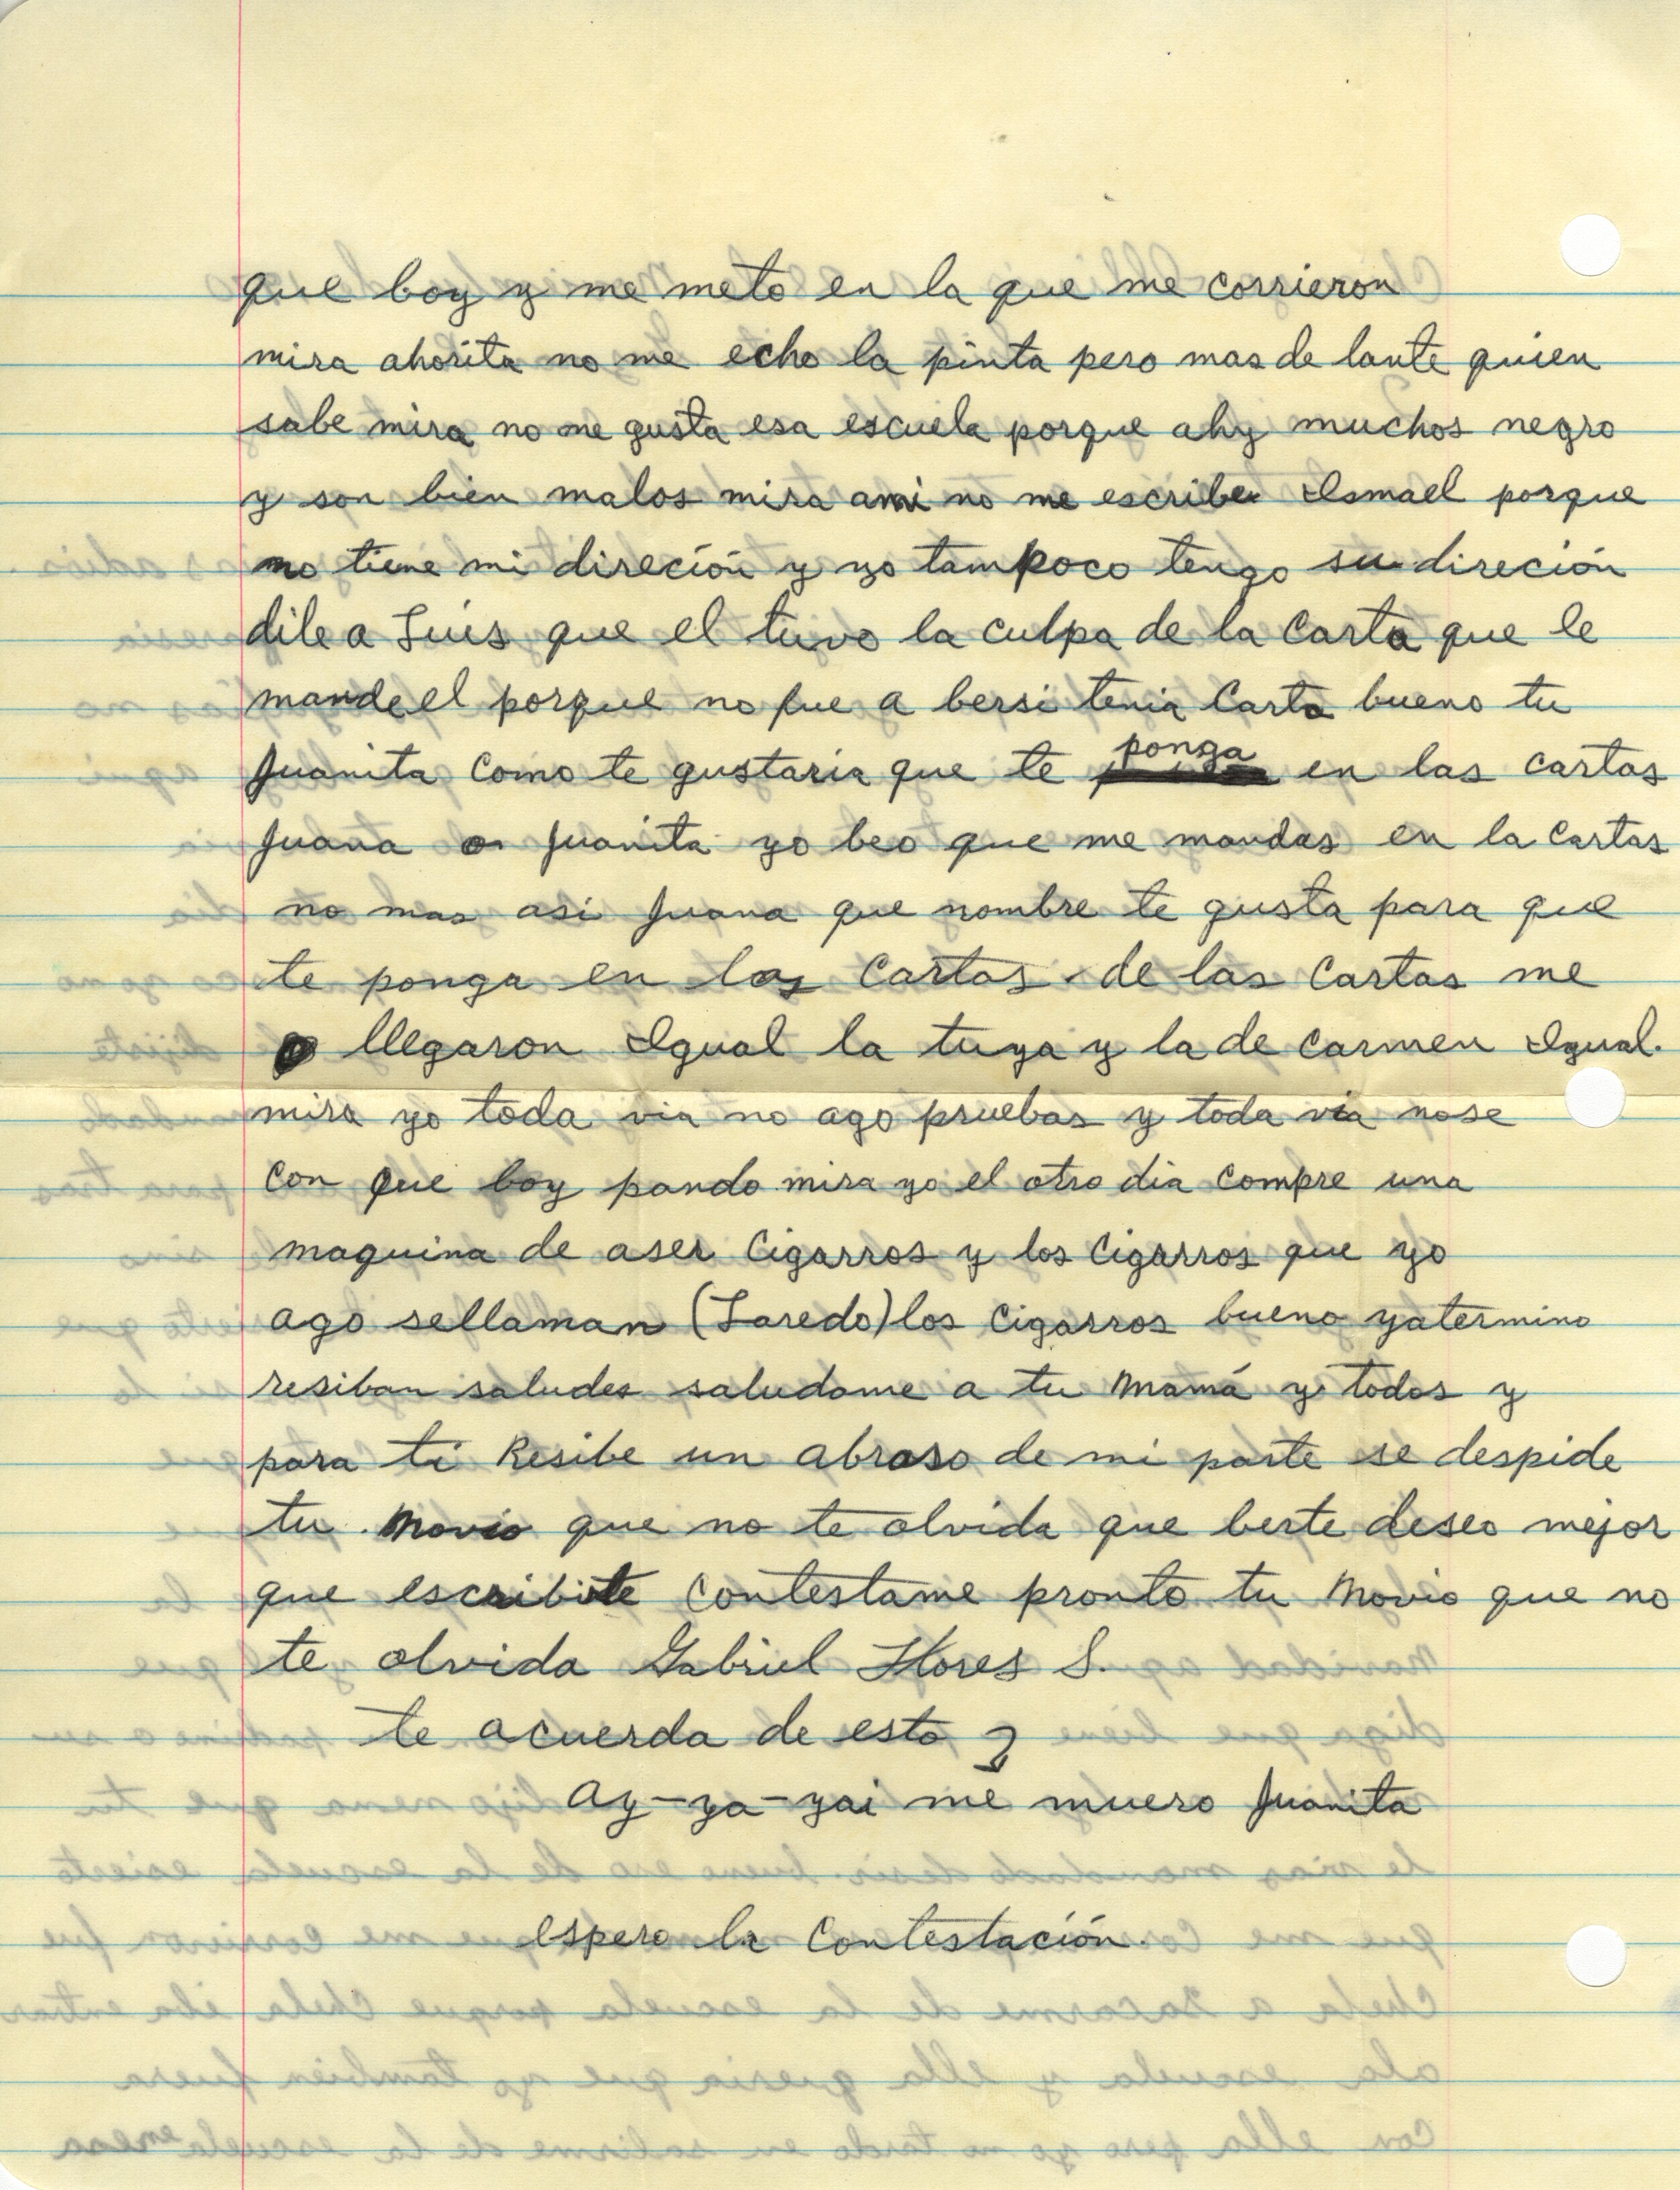 que boy y me meto en la que me corrieron
mira ahorita no me echo la pinta pero mas de lante quien
sabe mira no me gusta esa escuela porque ahy muchos negro
y son bien malos mira ami no me escribe Ismael porque
no tiene mi direción y yo tampoco tengo su direción
dile a Luis que el tuvo la culpa de la carta que le
mande el porque no fue a bersi tenia Carta bueno tu
Juanita Como te gustaria que te ponga en las cartas
Juana o Juanita yo beo que me mandas en la Cartas
no mas asi Juana que nombre te gusta para que
te ponga en las Cartas de las Cartas me
llegaron Igual la tuya y la de Carmen Igual.
mira yo toda via no ago pruebas y toda via nose
Con que boy pando mira yo el otro dia Compre una
maquina de aser Cigarros y los Cigarros que yo
ago sellaman (Laredo) los Cigarros bueno yatermino
resiban saludes saludame a tu Mamá y todos y
para ti Resibe un abraso de mi parte se despide
tu Novio que no te olvida que berte deseo mejor
que escribite Contestame pronto tu Novio que no
te olvida Gabriel Flores S.
te acuerda de esto ?
ay-ya-yai me muero Juanita
espero la Contestación.